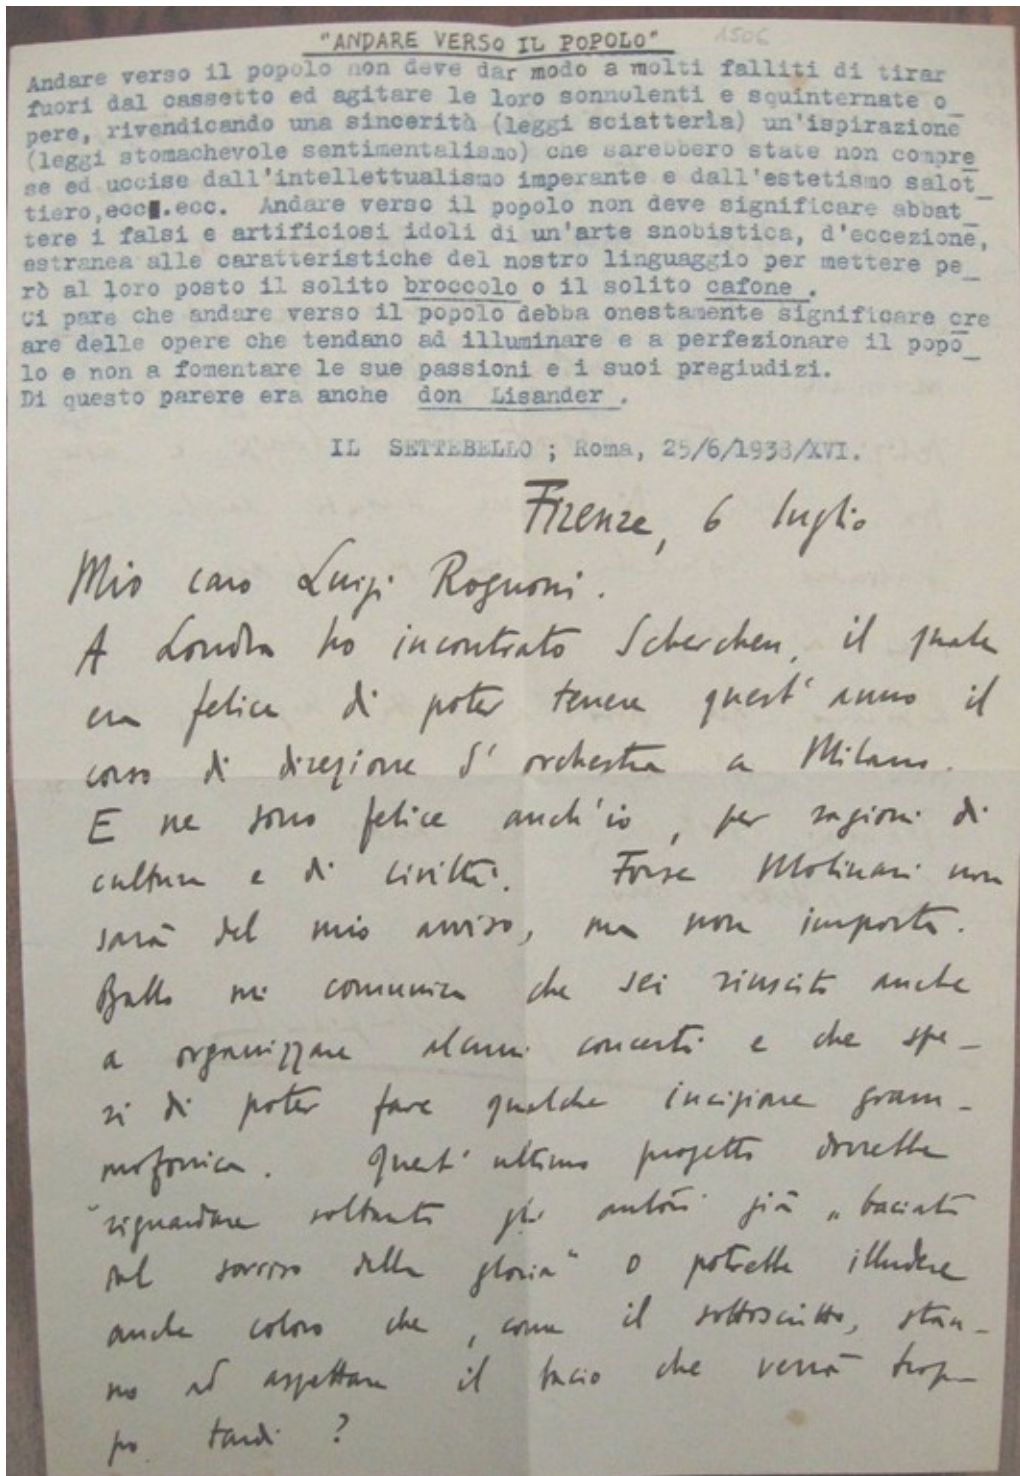 "ANDARE VERSO IL POPOLO" 1506
Andare verso il popolo non deve dar modo a molti falliti di tirar
fuori dal cassetto ed agitare le loro sonnolenti e squinternate o_
pere, rivendicando una sincerità (leggi sciatteria) un'ispirazione
(leggi stomachevole sentimentalismo) che sarebbero state non compre_
se ed uccise dall'intellettualismo imperante e dall'estetismo salot_
tiero, ecc.ecc. Andare verso il popolo non deve significare abbat_
tere i falsi e artificiosi idoli di un'arte snobistica, d'eccezione,
estranea alle caratteristiche del nostro linguaggio per mettere pe_
rò al loro posto il solito broccolo o il solito cafone.
Ci pare che andare verso il popolo debba onestamente significare cre_
are delle opere che tendano ad illuminare e a perfezionare il popo_
lo e non a fomentare le sue passioni e i suoi pregiudizi.
Di questo parere era anche don Lisander.
IL SETTEBELLO ; Roma, 25/6/1938/XVI.
Firenze, 6 luglio
Mio caro Luigi Rognoni.
A Londra ho incontrato Scherchen, il quale
era felice di poter tenere quest'anno il
corso di direzione d'orchestra a Milano.
E ne sono felice anch'io, per ragioni di
cultura e di civiltà. Forse Molinari non
sarà del mio avviso, ma non importa.
Ballo mi comunica che sei riuscito anche
a organizzare alcuni concerti e che spe-
ri di poter fare qualche incisione gram-
mofonica. Quest'ultimo progetto dovrebbe
riguardare soltanto gli autori già „baciati
dal sorriso della gloria" o potrebbe illudere
anche coloro che, come il sottoscritto, stan-
no ad aspettare il bacio che verrà trop-
po tardi?